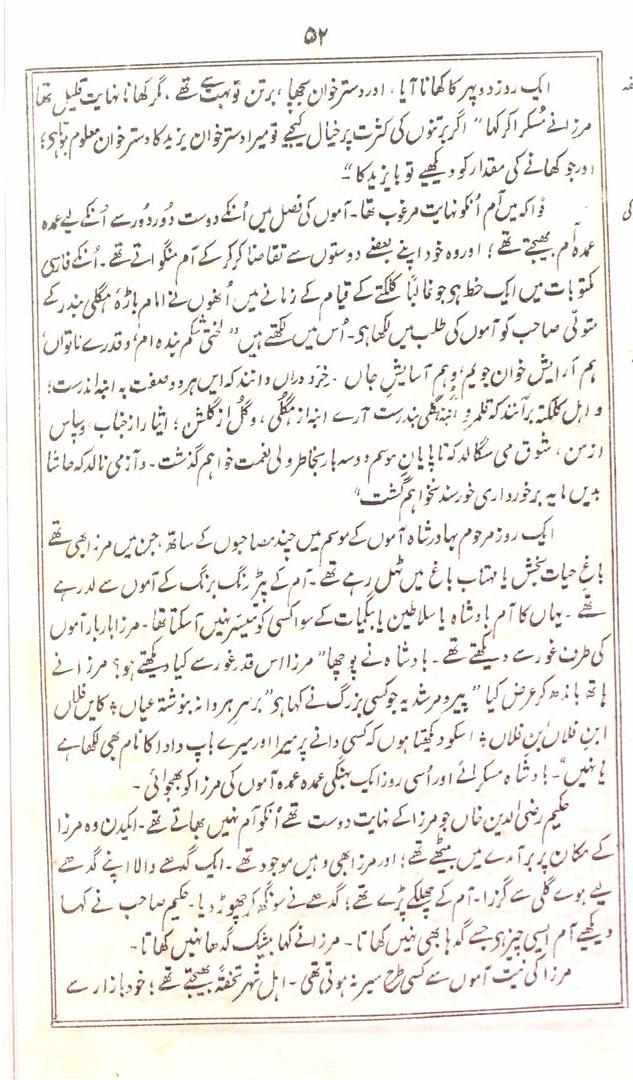 ۵۲
ایک روز دوپہر کا کھانا آیا، اور دسترخوان بچھا، برتن تو بہت سے تھے، مگر کھانا نہایت قلیل تھا
مرزا نے مُسکرا کر کہا "اگر برتنوں کی کثرت پر خیال کیجیے تو میرا دسترخوان یزید کا دسترخوان معلوم ہوتا ہی؛
اور جو کھانے کی مقدار کو دیکھیے تو بایزید کا"۔
فواکہ میں آم اُنکو نہایت مرغوب تھا۔ آموں کی فصل میں اُنکے دوست دُور دُور سے اُنکے لیے عمدہ
عمدہ آم بھیجتے تھے؛ اور وہ خود اپنے بعضے دوستوں سے تقاضا کر کر کے آم منگواتے تھے۔ اُنکے فارسی
مکتوبات میں ایک خط ہی جو غالباً کلکتے کے قیام کے زمانے میں اُنھوں نے امام باڑۂ ہگلی بندر کے
متولّی صاحب کو آموں کی طلب میں لکھا ہی۔ اُس میں لکھتے ہیں "لختی شکم بندہ ام، و قدرے ناتواں
ہم آرایش خوان جویم و ہم آسایش جاں۔ خرد وراں دانند کہ ایں ہر دو صفت بہ انبہ اندرست؛
و اہل کلکتہ برآنند کہ قلمرو انبہ ہگلی بندرست آرے انبہ از ہگلی، و گل از گلشن؛ ایثار از جناب، و سپاس
از من، شوق می سگالد کہ تا پایان موسم دو سہ بار بخاطر ولی نعمت خواہم گذشت۔ و آز می نالد کہ حاشا
بدیں مایہ برخورداری خورسند نخواہم گشت"
ایک روز مرحوم بہادر شاہ آموں کے موسم میں چند مصاحبوں کے ساتھ، جن میں مرزا بھی تھے
باغ حیات بخش یا مہتاب باغ میں ٹہل رہے تھے۔ آم کے پیڑ رنگ برنگ کے آموں سے لدرہے
تھے۔ یہاں کا آم بادشاہ یا سلاطین یا بیگمات کے سوا کسی کو میسر نہیں آسکتا تھا۔ مرزا بار بار آموں
کی طرف غور سے دیکھتے تھے۔ بادشاہ نے پوچھا "مرزا اس قدر غور سے کیا دیکھتے ہو؟ مرزا نے
ہاتھ باندھ کر عرض کیا "پیرو مرشد یہ جو کسی بزرگ نے کہا ہی "برسر ہر دانہ بنوشتہ عیاں ؞ کایں فلاں
ابن فلاں ابن فلاں ؞ اسکو دیکھتا ہوں کہ کسی دانے پر میرا اور میرے باپ دادا کا نام بھی لکھا ہے
یا نہیں"۔ بادشاہ مسکرائے اور اُسی روز ایک بہنگی عمدہ عمدہ آموں کی مرزا کو بھجوائی۔
حکیم رضی الدین خاں جو مرزا کے نہایت دوست تھے اُنکو آم نہیں بھاتے تھے۔ ایکدن وہ مرزا
کے مکان پر برآمدے میں بیٹھے تھے؛ اور مرزا بھی وہیں موجود تھے۔ ایک گدھے والا اپنے گدھے
لیے ہوے گلی سے گزرا۔ آم کے چھلکے پڑے تھے؛ گدھے نے سونگھ کر چھوڑ دیا۔ حکیم صاحب نے کہا
دیکھیے آم ایسی چیز ہی جسے گدہا بھی نہیں کھاتا۔ مرزا نے کہا بیشک گدھا نہیں کھاتا۔
مرزا کی نیت آموں سے کسی طرح سیر نہ ہوتی تھی۔ اہل شہر تحفۃً بھیجتے تھے؛ خود بازار سے